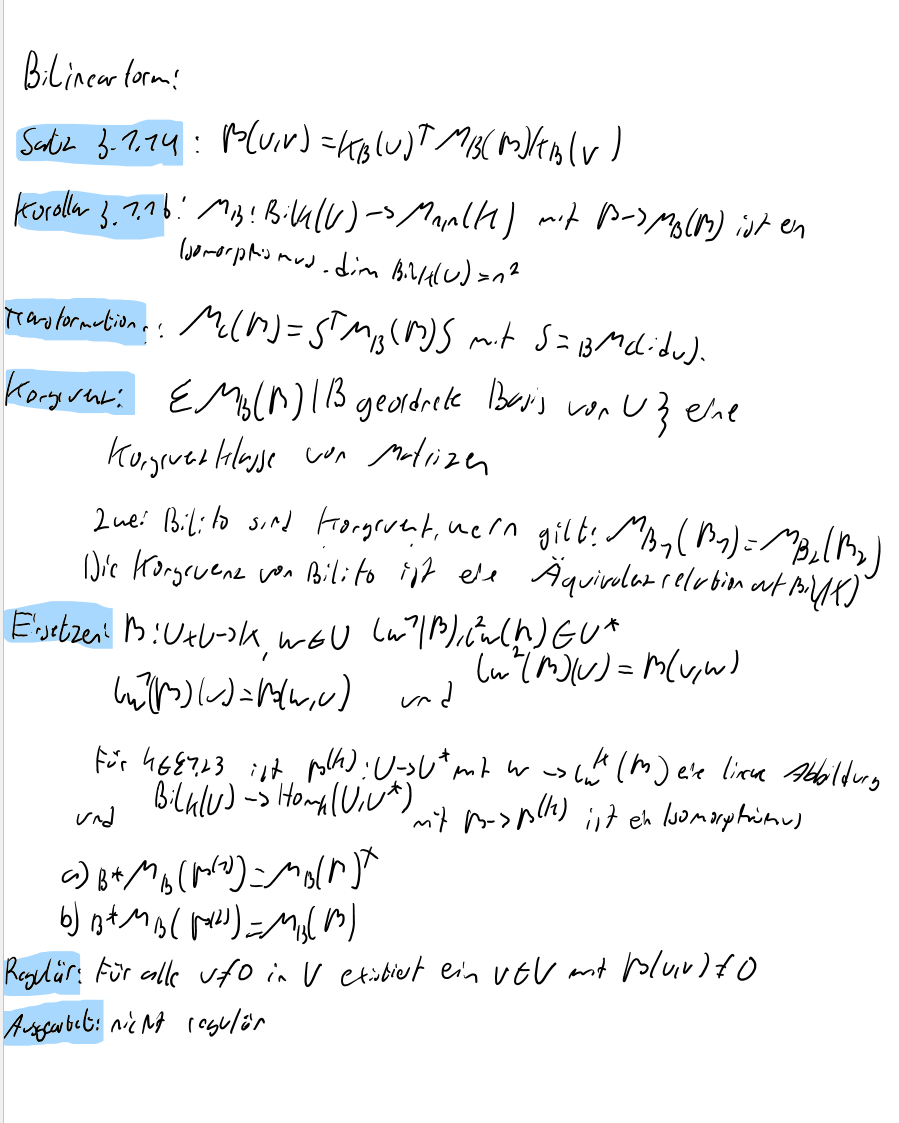 Bilinearform:
Satz 3.1.14: β(u,v) = κ_B(u)^T M_B(β) κ_B(v)
Korollar 3.1.16: M_B: Bil_K(V) -> M_{n,n}(K) mit β -> M_B(β) ist ein
Isomorphismus. dim Bil_K(V) = n²
Transformation: M_C(β) = S^T M_B(β) S mit S = _B M_C(id_V).
Kongruent: { M_B(β) | B geordnete Basis von V } eine
Kongruenzklasse von Matrizen
Zwei Bilifo sind kongruent, wenn gilt: M_{B_1}(β_1) = M_{B_2}(β_2)
Die Kongruenz von Bilifo ist eine Äquivalenzrelation auf Bil(K)
Einsetzen: β: V×V -> K, w ∈ V l_w^1(β), l_w^2(β) ∈ V*
l_w^1(β)(v) = β(w,v) und l_w^2(β)(v) = β(v,w)
Für k ∈ {1,2} ist β^(k): V -> V* mit w -> l_w^k(β) eine lineare Abbildung
und Bil_K(V) -> Hom_K(V,V*) mit β -> β^(k) ist ein Isomorphismus
a) _{B*}M_B(β^(1)) = M_B(β)^T
b) _{B*}M_B(β^(2)) = M_B(β)
Regulär: Für alle u ≠ 0 in V existiert ein v ∈ V mit β(u,v) ≠ 0
Ausgeartet: nicht regulär